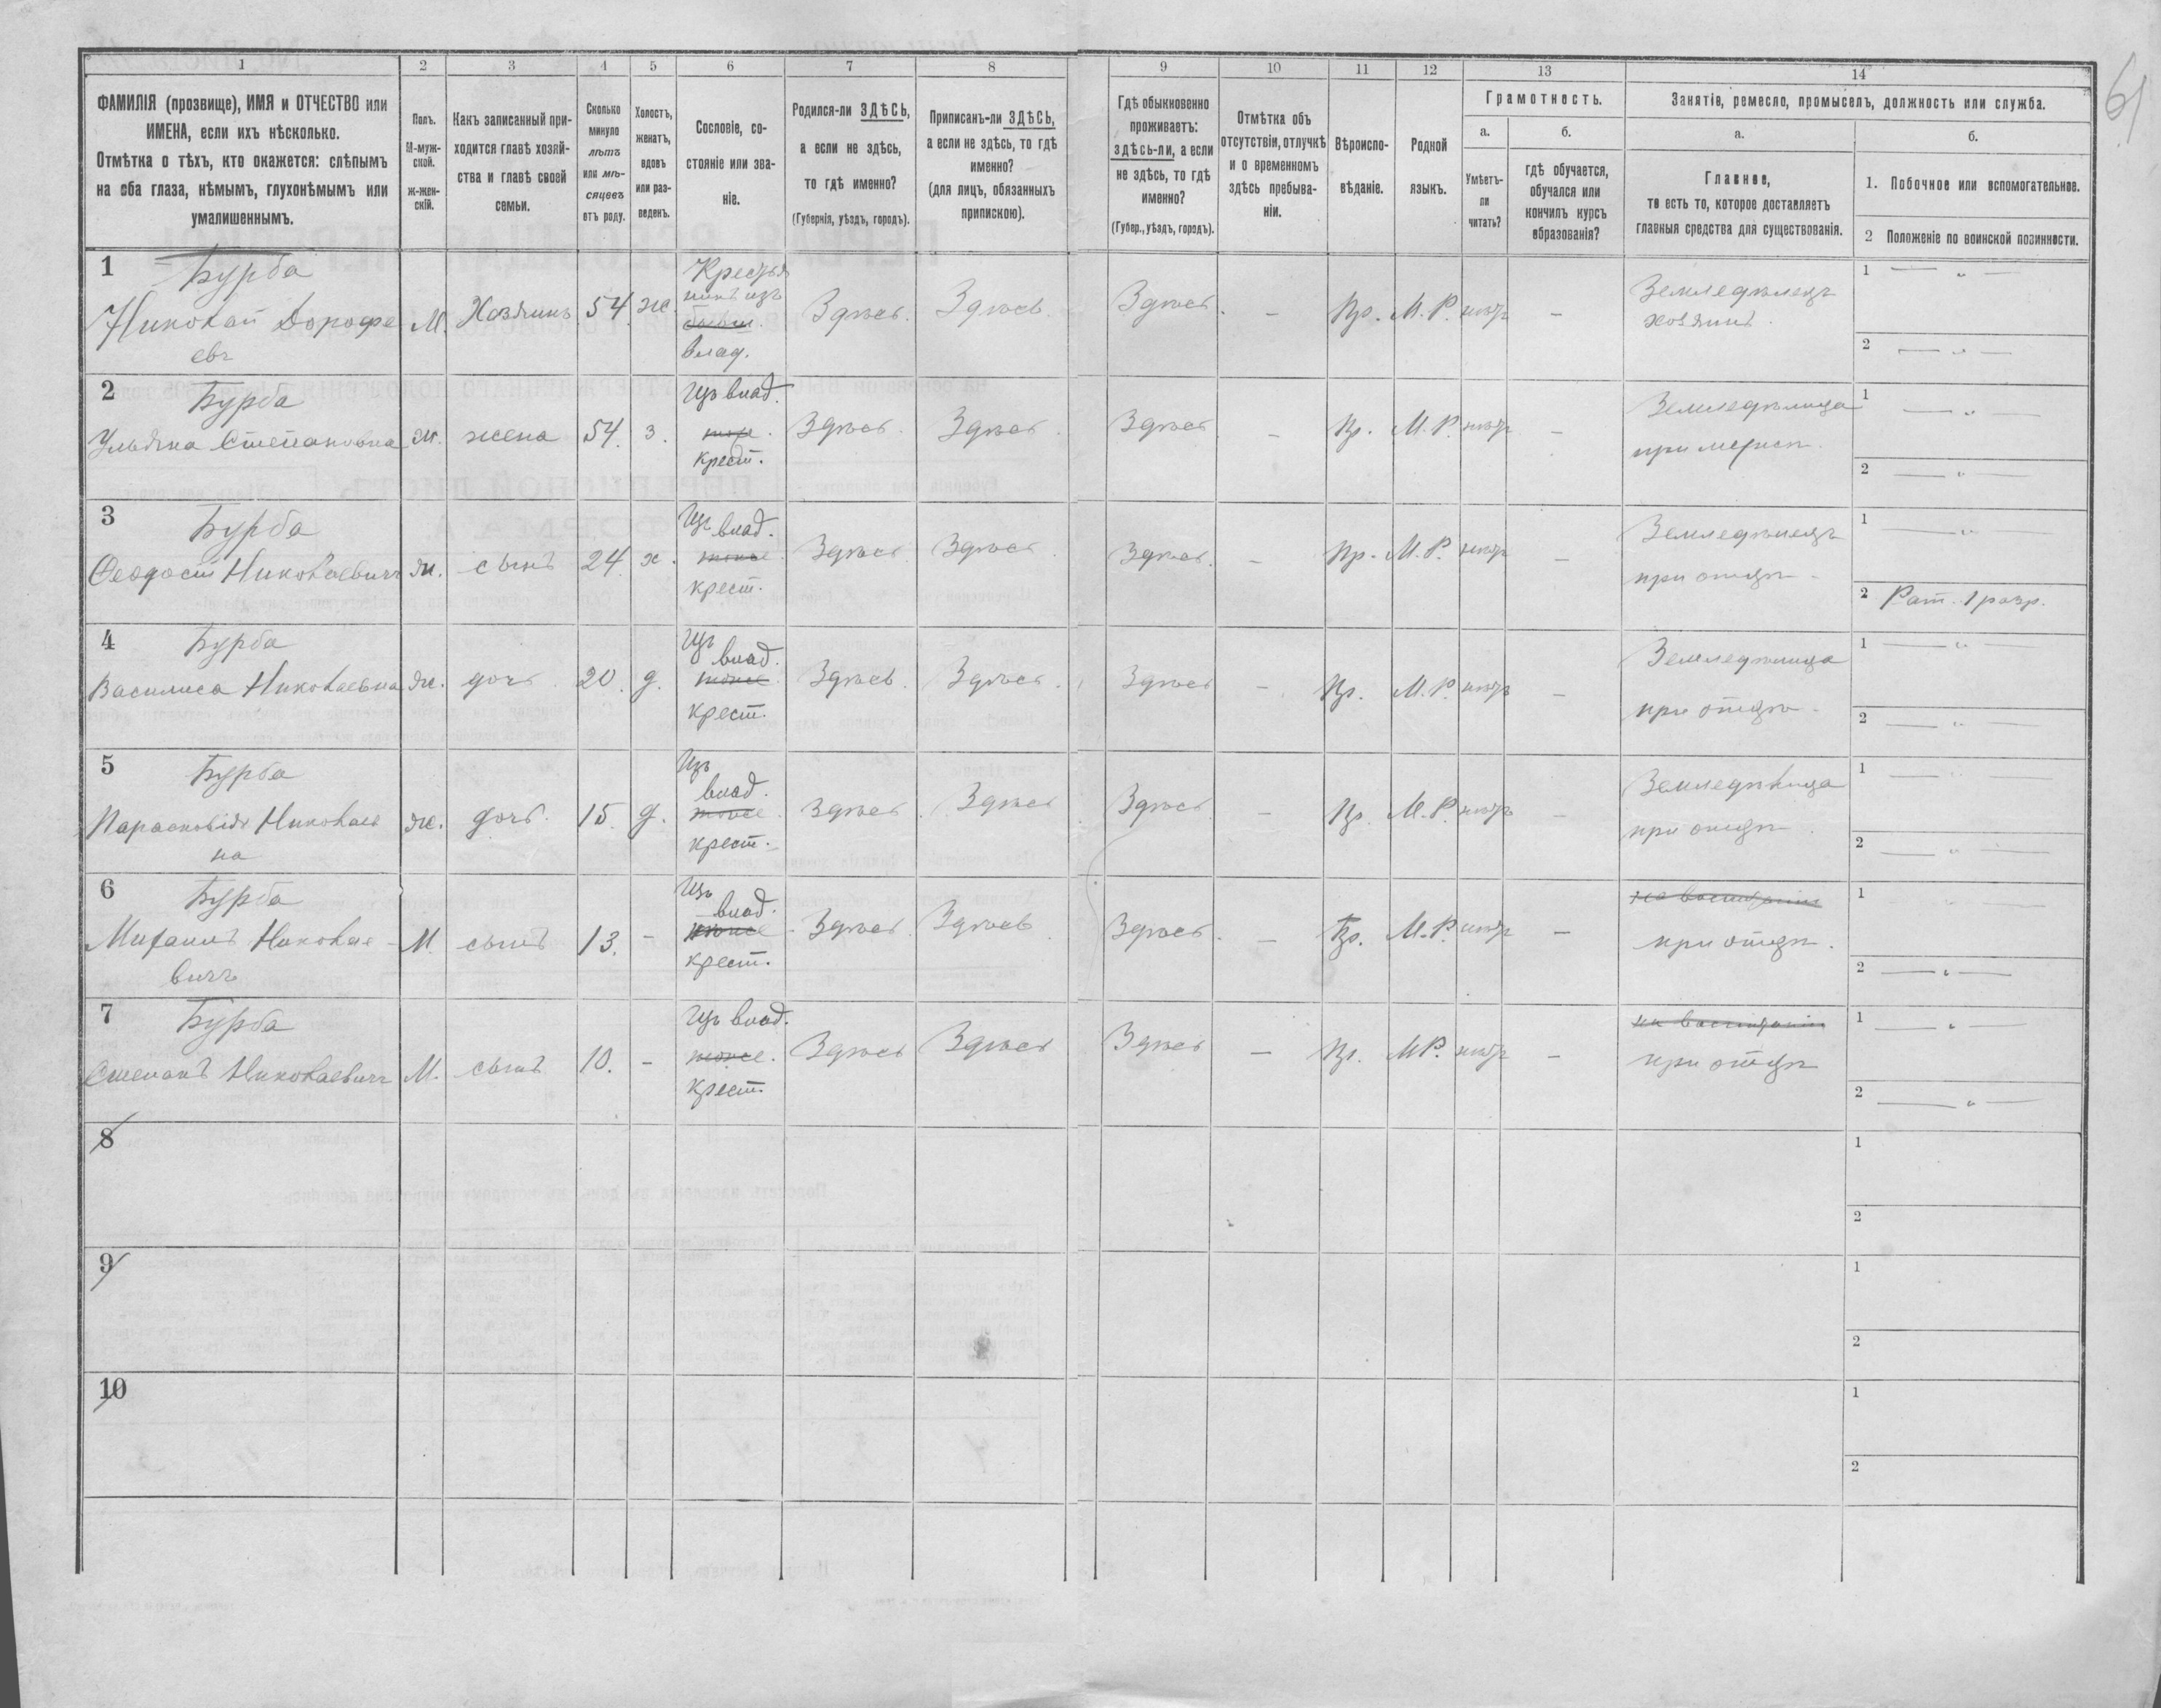 61
1 2 3 4 5 6 7 8 9 10 11 12 13 14
ФАМИЛІЯ (прозвище), ИМЯ и ОТЧЕСТВО или
ИМЕНА, если ихъ нѣсколько.
Отмѣтка о тѣхъ, кто окажется: слѣпымъ
на оба глаза, нѣмымъ, глухонѣмымъ или
умалишеннымъ.
Полъ.
М-муж-
ской.
ж-жен-
скій.
Какъ записанный при-
ходится главѣ хозяй-
ства и главѣ своей
семьи.
Сколько
минуло
лѣтъ
или мѣ-
сяцевъ
отъ роду.
Холостъ,
женатъ,
вдовъ
или раз-
веденъ.
Сословіе, со-
стояніе или зва-
ніе.
Родился-ли ЗДѢСЬ,
а если не здѣсь,
то гдѣ именно?
(Губернія, уѣздъ, городъ).
Приписанъ-ли ЗДѢСЬ,
а если не здѣсь, то гдѣ
именно?
(для лицъ, обязанныхъ
припискою).
Гдѣ обыкновенно
проживаетъ:
здѣсь-ли, а если
не здѣсь, то гдѣ
именно?
(Губер., уѣздъ, городъ).
Отмѣтка объ
отсутствіи, отлучкѣ
и о временномъ
здѣсь пребыва-
ніи.
Вѣроиспо-
вѣданіе.
Родной
языкъ.
Грамотность.
а.
Умѣетъ-
ли
читать?
б.
гдѣ обучается,
обучался или
кончилъ курсъ
образованія?
Занятіе, ремесло, промыселъ, должность или служба.
а.
Главное,
то есть то, которое доставляетъ
главныя средства для существованія.
б.
1. Побочное или вспомогательное.
2 Положеніе по воинской повинности.
1 Бурба
Николай Дорофе
евъ
М. Хозяинъ 54 ж.
Крестья
нинъ изъ
бывш.
влад.
Здѣсь. Здѣсь. Здѣсь. – Пр. М. Р. нѣтъ –
Земледѣлецъ
хозяинъ.
1 — „ —
2 — „ —
2 Бурба
Ульяна Степановна
ж. жена 54. з.
Изъ влад.
тоже.
крест.
Здѣсь. Здѣсь. Здѣсь – Пр. М. Р. нѣтъ –
Земледѣлица
при мужѣ.
1 — „ —
2 — „ —
3 Бурба
Феодосій Николаевичъ
м. сынъ 24. х.
Изъ влад.
тоже
крест.
Здѣсь Здѣсь. Здѣсь. – Пр. М. Р. нѣтъ –
Земледѣлецъ
при отцѣ.
1 — „ —
2 Рат. 1 разр.
4 Бурба
Василиса Николаевна
ж. дочь 20. д.
Изъ
влад.
тоже
крест.
Здѣсь. Здѣсь. Здѣсь – Пр. М. Р. нѣтъ –
Земледѣлица
при отцѣ.
1 — „ —
2 — „ —
5 Бурба
Парасковія Николаев
на
ж. дочь. 15. д.
Изъ
влад.
тоже
крест.
здѣсь. Здѣсь Здѣсь. – Пр. М. Р. нѣтъ –
Земледѣлица
при отцѣ.
1 — „ —
2 — „ —
6 Бурба
Михаилъ Николае-
вичъ
М. сынъ 13. –
Изъ
влад.
тоже
крест.
Здѣсь. Здѣсь Здѣсь. – Пр. М. Р. нѣтъ –
при отцѣ.
1 — „ —
2 — „ —
7 Бурба
Степанъ Николаевичъ
М. сынъ 10. –
Изъ влад.
тоже.
крест.
Здѣсь Здѣсь Здѣсь – Пр. М Р. нѣтъ –
при отцѣ
1 — „ —
2 — „ —
8
1
2
9
1
2
10
1
2